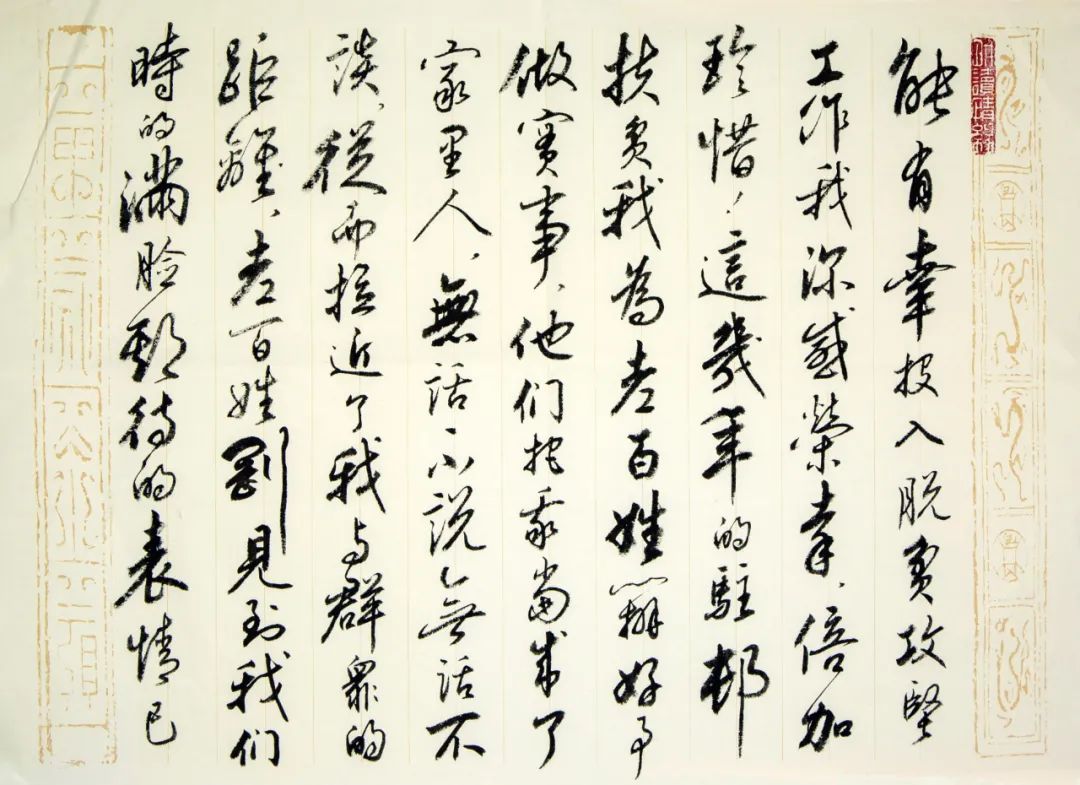 能有幸投入脱贫攻堅
工作我深感榮幸，倍加
珍惜！這幾年的駐邨
扶贫我為老百姓辦好事
做實事，他们把我當成了
家里人，無話不説無話不
談，從而拉近了我与群眾的
距離，老百姓剛見到我们
時的滿脸期待的表情已